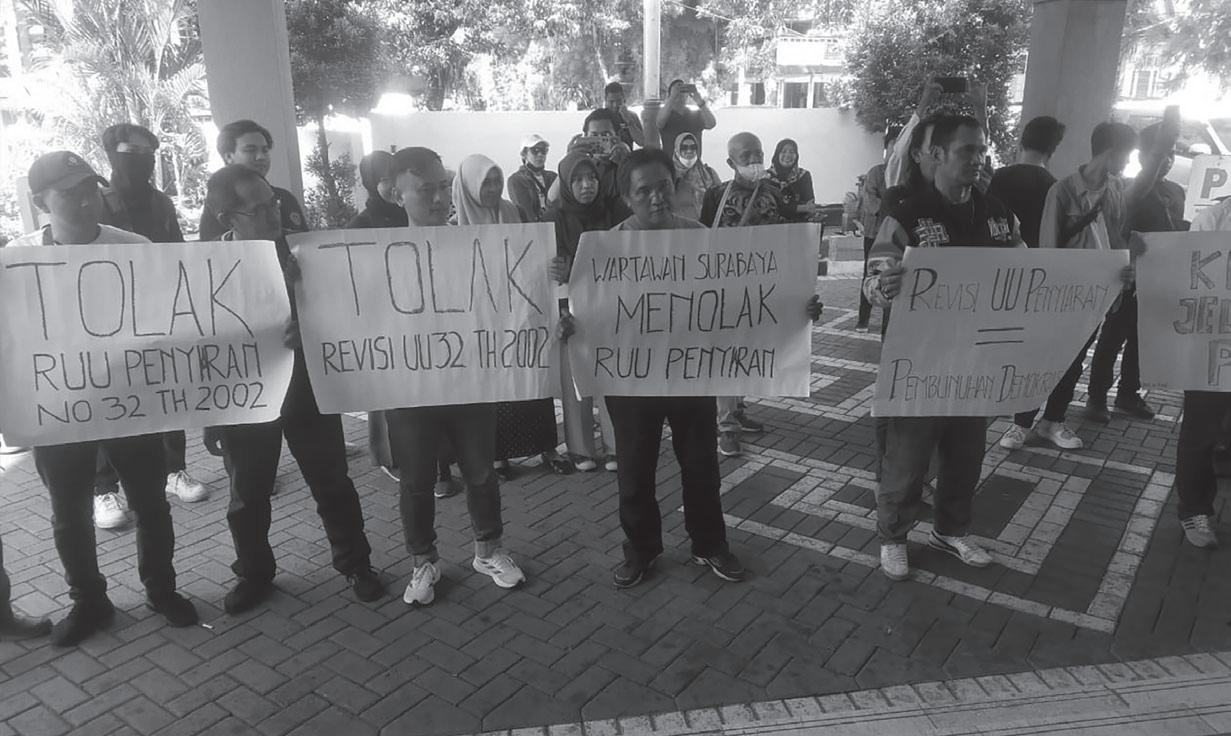 TOLAK
RUU PENYIARAN
NO 32 TH 2002
TOLAK
REVISI UU 32 TH 2002
WARTAWAN SURABAYA
MENOLAK
RUU PENYIARAN
REVISI UU PENYIARAN
=
PEMBUNUHAN DEMOKRASI
K
JE
P
P